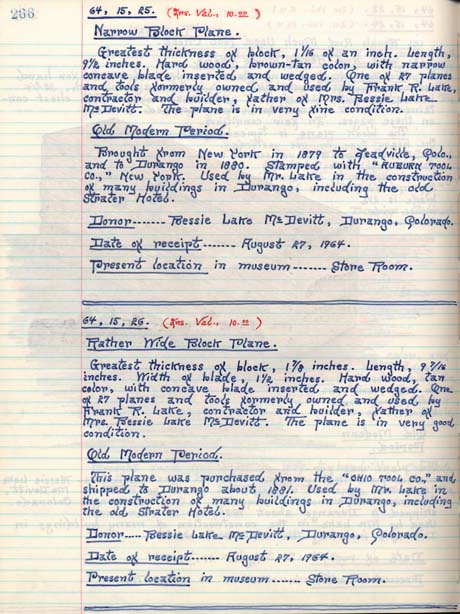 266
64, 15, 25. (Ins. Val., 10.00)
Narrow Block Plane.
Greatest thickness of block, 1 1/16 of an inch. Length,
9 1/2 inches. Hard wood, brown-tan color, with narrow
concave blade inserted and wedged. One of 27 planes
and tools formerly owned and used by Frank R. Lake,
contractor and builder, father of Mrs. Bessie Lake
McDevitt. The plane is in very fine condition.
Old Modern Period.
Brought from New York in 1879 to Leadville, Colo.,
and to Durango in 1880. Stamped with, "AUBURN TOOL
CO.," New York. Used by Mr. Lake in the construction
of many buildings in Durango, including the old
Strater Hotel.
Donor------- Bessie Lake McDevitt, Durango, Colorado.
Date of receipt------- August 27, 1964.
Present location in museum------- Store Room.
64, 15, 26. (Ins. Val., 10.00)
Rather Wide Block Plane.
Greatest thickness of block, 1 7/8 inches. Length, 9 7/16
inches. Width of blade, 1 1/2 inches. Hard wood, tan
color, with concave blade inserted and wedged. One
of 27 planes and tools formerly owned and used by
Frank R. Lake, contractor and builder, father of
Mrs. Bessie Lake McDevitt. The plane is in very good
condition.
Old Modern Period.
This plane was purchased from the "OHIO TOOL CO.," and
shipped to Durango about 1881. Used by Mr. Lake in
the construction of many buildings in Durango, including
the old Strater Hotel.
Donor----- Bessie Lake McDevitt, Durango, Colorado.
Date of receipt------- August 27, 1964.
Present location in museum------ Store Room.